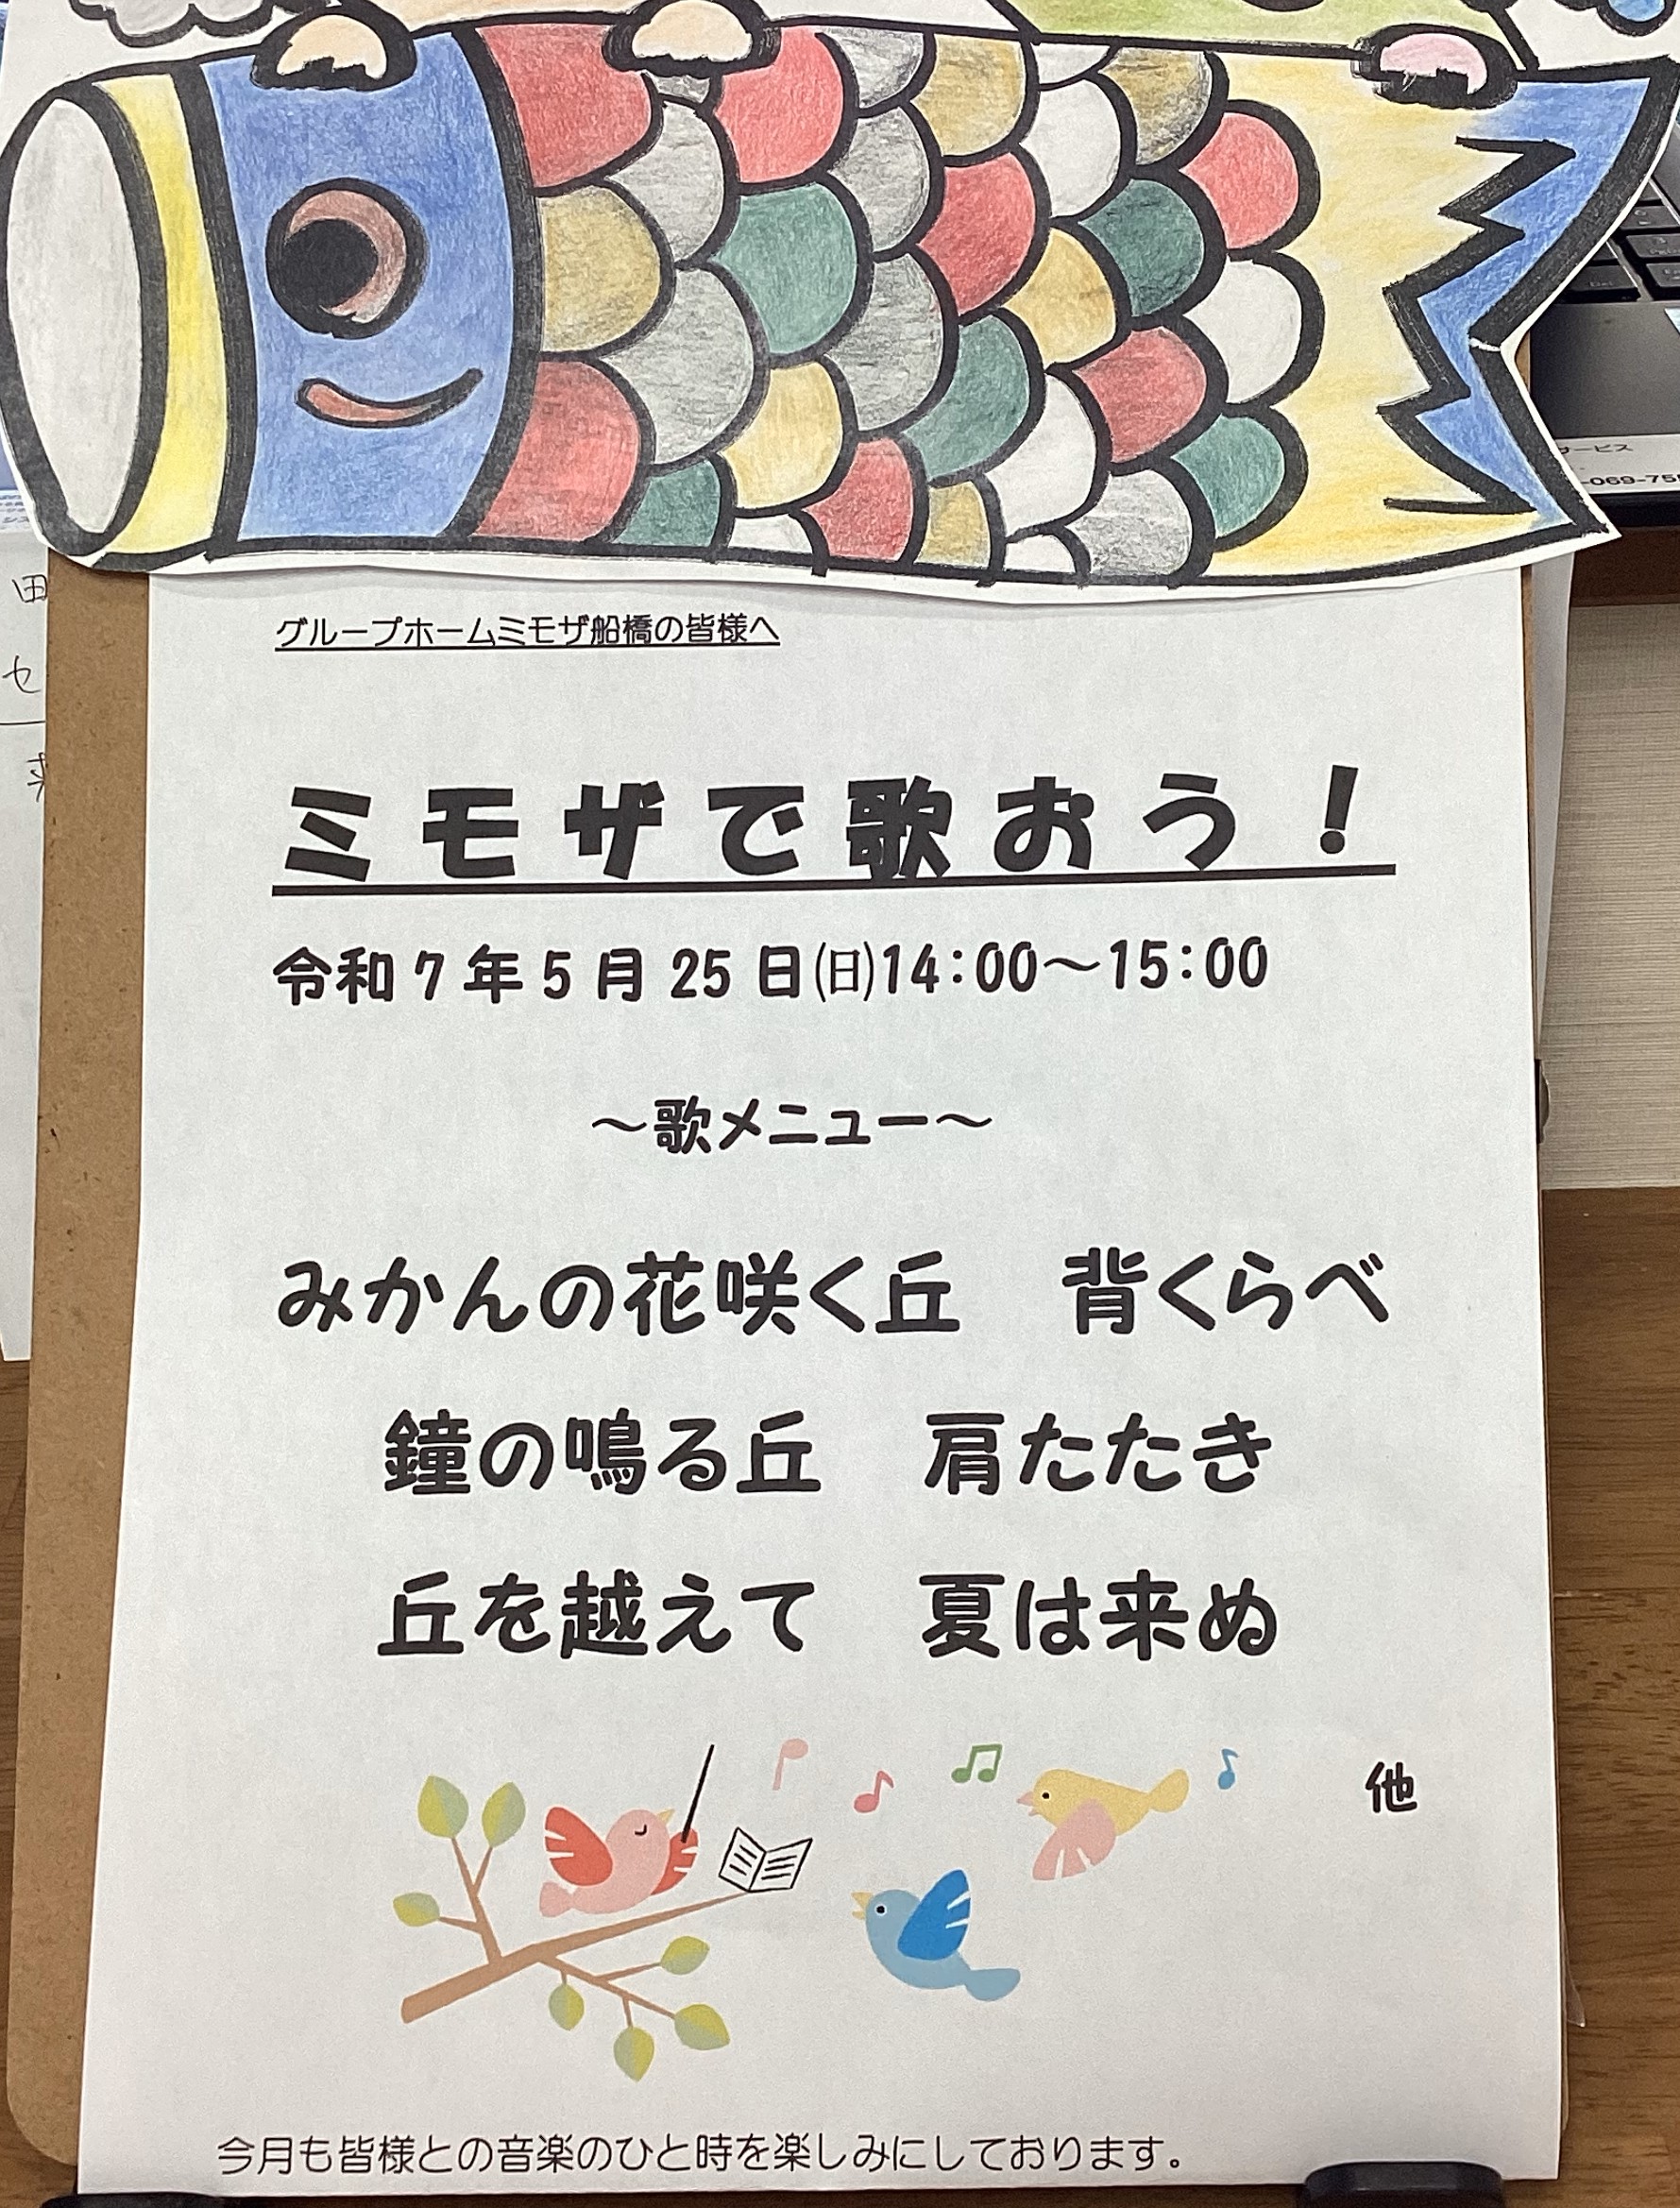 グループホームミモザ船橋の皆様へ
ミモザで歌おう！
令和7年5月25日㈰14:00～15:00
～歌メニュー～
みかんの花咲く丘　背くらべ
鐘の鳴る丘　肩たたき
丘を越えて　夏は来ぬ
他
今月も皆様との音楽のひと時を楽しみにしております。
ービス
-069-75
田
セ